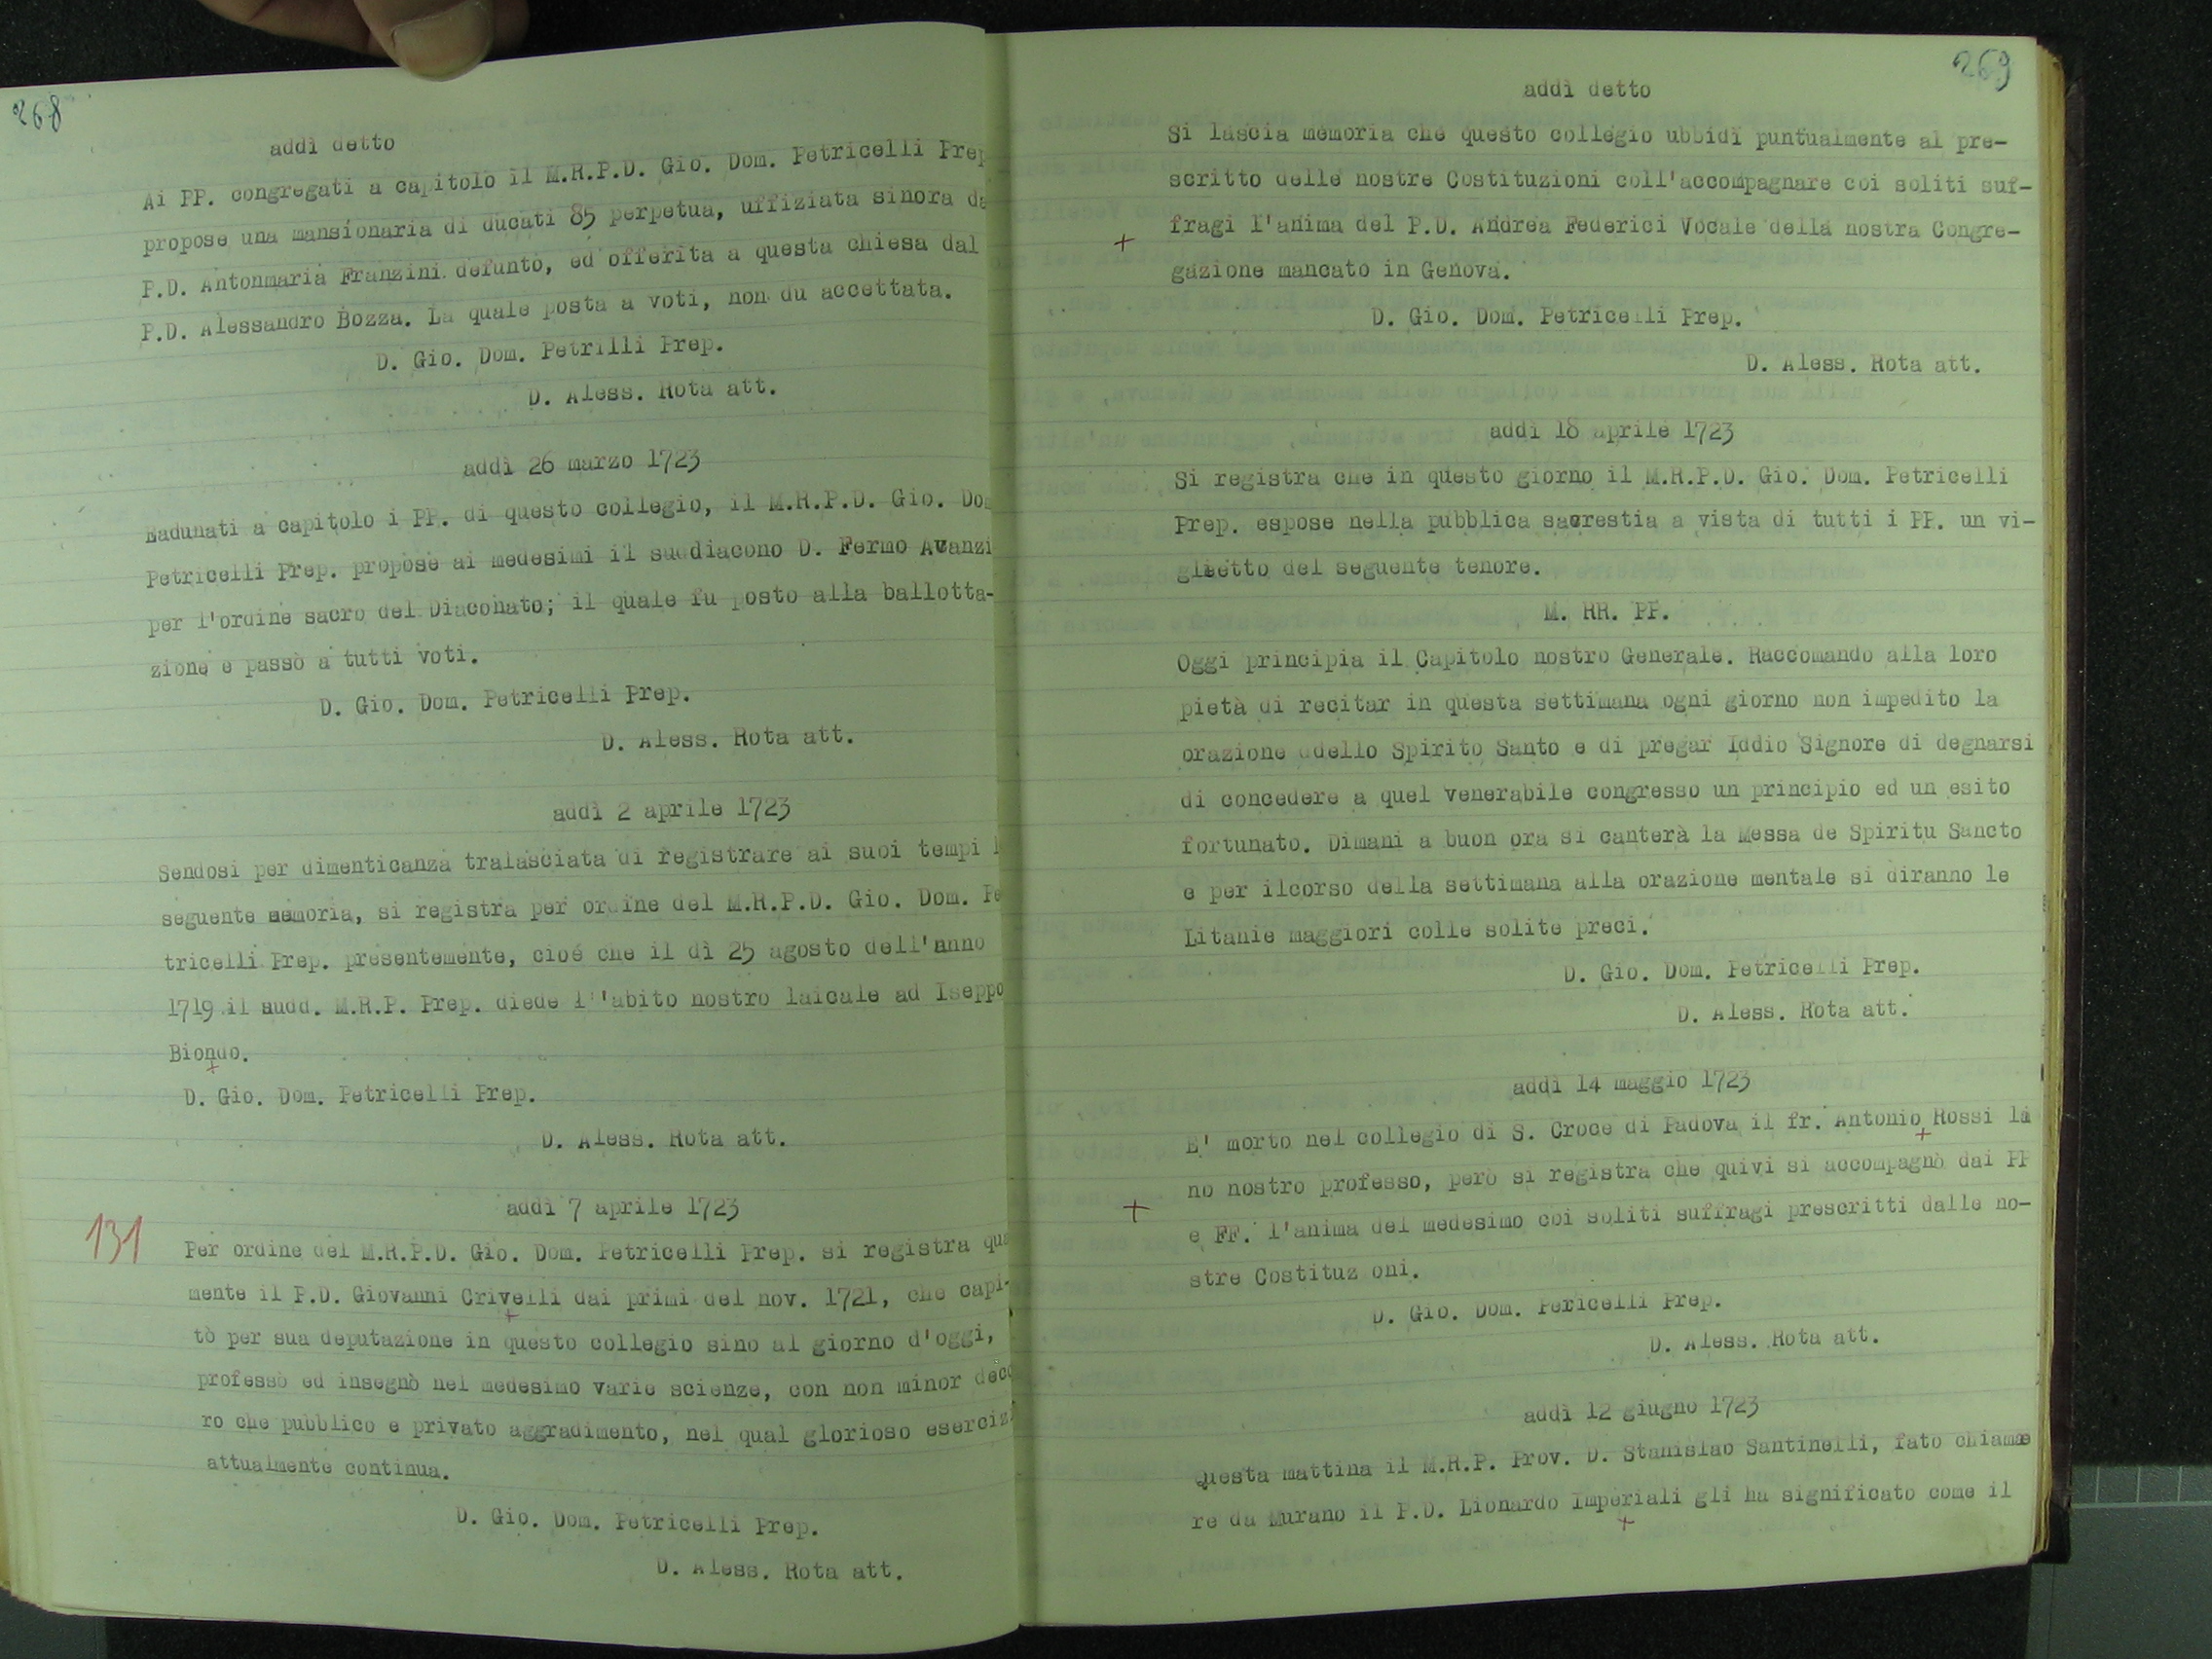 268
addì detto
Ai PP. congregati a capitolo il M.R.P.D. Gio. Dom. Petricelli Prep
propose una mansionaria di ducati 85 perpetua, uffiziata sinora da
P.D. Antonmaria Franzini defunto, ed offerita a questa chiesa dal
P.D. Alessandro Bozza. La quale posta a voti, non du accettata.
D. Gio. Dom. Petrilli Prep.
D. Aless. Rota att.
addì 26 marzo 1723
Radunati a capitolo i PP. di questo collegio, il M.R.P.D. Gio. Dom
Petricelli Prep. propose ai medesimi il suddiacono D. Fermo Avanzi
per l'ordine sacro del Diaconato; il quale fu posto alla ballotta-
zione e passò a tutti voti.
D. Gio. Dom. Petricelli Prep.
D. Aless. Rota att.
addì 2 aprile 1723
Sendosi per dimenticanza tralasciata di registrare ai suoi tempi l
seguente memoria, si registra per ordine del M.R.P.D. Gio. Dom. Pe
tricelli Prep. presentemente, cioé che il dì 25 agosto dell'anno
1719 il sudd. M.R.P. Prep. diede l''abito nostro laicale ad Iseppo
Biondo.
+
D. Gio. Dom. Petricelli Prep.
D. Aless. Rota att.
addì 7 aprile 1723
131
Per ordine del M.R.P.D. Gio. Dom. Petricelli Prep. si registra qua
mente il P.D. Giovanni Crivelli dai primi del nov. 1721, che capi-
+
tò per sua deputazione in questo collegio sino al giorno d'oggi,
professò ed insegnò nel medesimo varie scienze, con non minor deco
ro che pubblico e privato aggradimento, nel qual glorioso esercizi
attualmente continua.
D. Gio. Dom. Petricelli Prep.
D. Aless. Rota att.
269
addì detto
Si lascia memoria che questo collegio ubbidì puntualmente al pre-
scritto delle nostre Costituzioni coll'accompagnare coi soliti suf-
fragi l'anima del P.D. Andrea Federici Vocale della nostra Congre-
+
gazione mancato in Genova.
D. Gio. Dom. Petricelli Prep.
D. Aless. Rota att.
addì 18 aprile 1723
Si registra che in questo giorno il M.R.P.D. Gio. Dom. Petricelli
Prep. espose nella pubblica sacrestia a vista di tutti i PP. un vi-
glietto del seguente tenore.
M. RR. PP.
Oggi principia il Capitolo nostro Generale. Raccomando alla loro
pietà di recitar in questa settimana ogni giorno non impedito la
orazione ddello Spirito Santo e di pregar Iddio Signore di degnarsi
di concedere a quel venerabile congresso un principio ed un esito
fortunato. Dimani a buon ora si canterà la Messa de Spiritu Sancto
e per ilcorso della settimana alla orazione mentale si diranno le
Litanie maggiori colle solite preci.
D. Gio. Dom. Petricelli Prep.
D. Aless. Rota att.
addì 14 maggio 1723
E' morto nel collegio di S. Croce di Padova il fr. Antonio Rossi la
+
no nostro professo, però si registra che quivi si accompagnò dai PP
+
e FF. l'anima del medesimo coi soliti suffragi prescritti dalle no-
stre Costituz oni.
D. Gio. Dom. Pericelli Prep.
D. Aless. Rota att.
addì 12 giugno 1723
Questa mattina il M.R.P. Prov. D. Stanislao Santinelli, fato chiama
re da Murano il P.D. Lionardo Imperiali gli ha significato come il
+